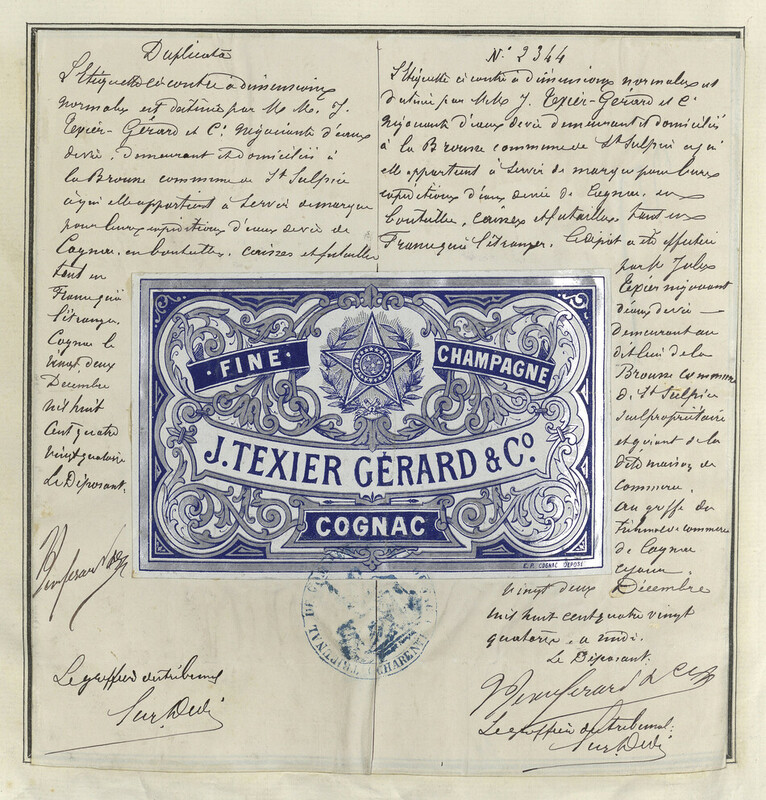 Duplicata
L'étiquette ci contre à dimensions
normales est destinée par M.M. J.
Texier-Gérard et Cie négociants d'eaux
devie, demeurant et domiciliés à
la Brousse commune de St Sulpice
à qui elle appartient à servir de marque
pour leurs expéditions d'eaux devie de
Cognac, en bouteilles, caisses et futailles
tant en
France qu'à
l'étranger.
Cognac le
vingt deux
Décembre
mil huit
cent quatre
vingt quatorze
Le Déposant.
Le greffier du tribunal
N° 2344
L'étiquette ci contre à dimensions normales est
destinée par M.M. J. Texier-Gérard et Cie
négociants d'eaux devie demeurant et domiciliés
à la Brousse commune de St Sulpice à qui
elle appartient à servir de marque pour leurs
expéditions d'eaux devie de Cognac, en
bouteilles, caisses et futailles tant en
France qu'à l'étranger. Le dépôt a été effectué
par Mr Jules
Texier négociant
d'eaux devie —
demeurant au
dit lieu de la
Brousse commune
de St Sulpice
seul propriétaire
et gérant de la
dite maison de
commerce.
au greffe du
Tribunal de commerce
de Cognac
vingt deux Décembre
mil huit cent quatre vingt
quatorze, a midi.
Le Déposant.
Le greffier du tribunal:
FINE CHAMPAGNE
J. TEXIER GÉRARD & Co.
COGNAC
E.R. COGNAC DÉPOSÉ
TRIBUNAL DE
CHARENTE